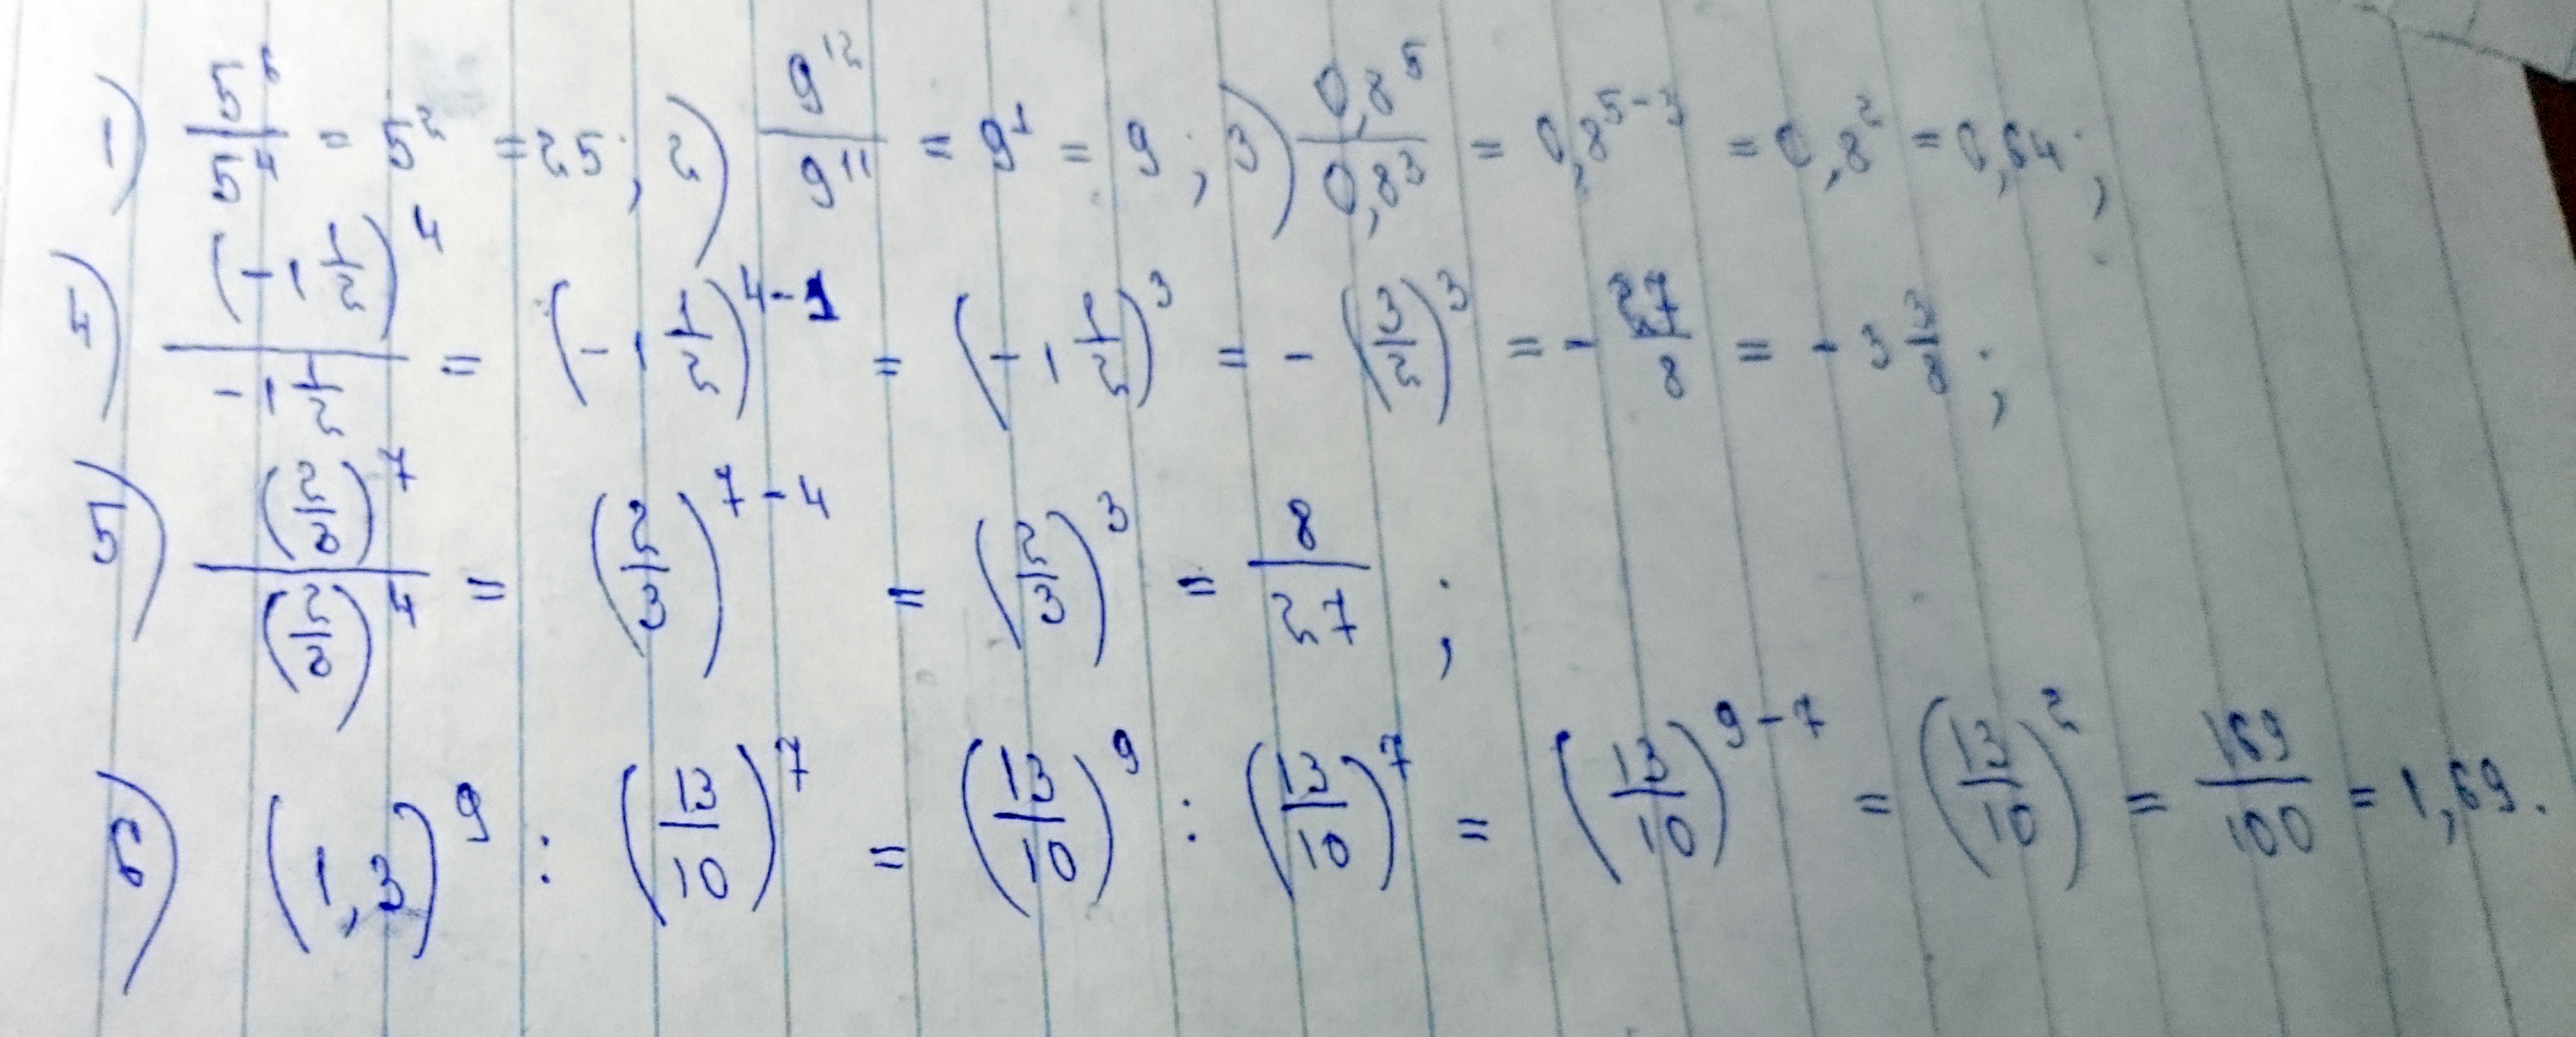 1) 5^6/5^4 = 5^2 = 25; 2) 9^12/9^11 = 9^1 = 9; 3) 0,8^5/0,8^3 = 0,8^(5-3) = 0,8^2 = 0,64;
4) (-1 1/2)^4/(-1 1/2) = (-1 1/2)^(4-1) = (-1 1/2)^3 = -(3/2)^3 = -27/8 = -3 3/8;
5) (2/3)^7/(2/3)^4 = (2/3)^(7-4) = (2/3)^3 = 8/27;
6) (1,3)^9 : (13/10)^7 = (13/10)^9 : (13/10)^7 = (13/10)^(9-7) = (13/10)^2 = 169/100 = 1,69.